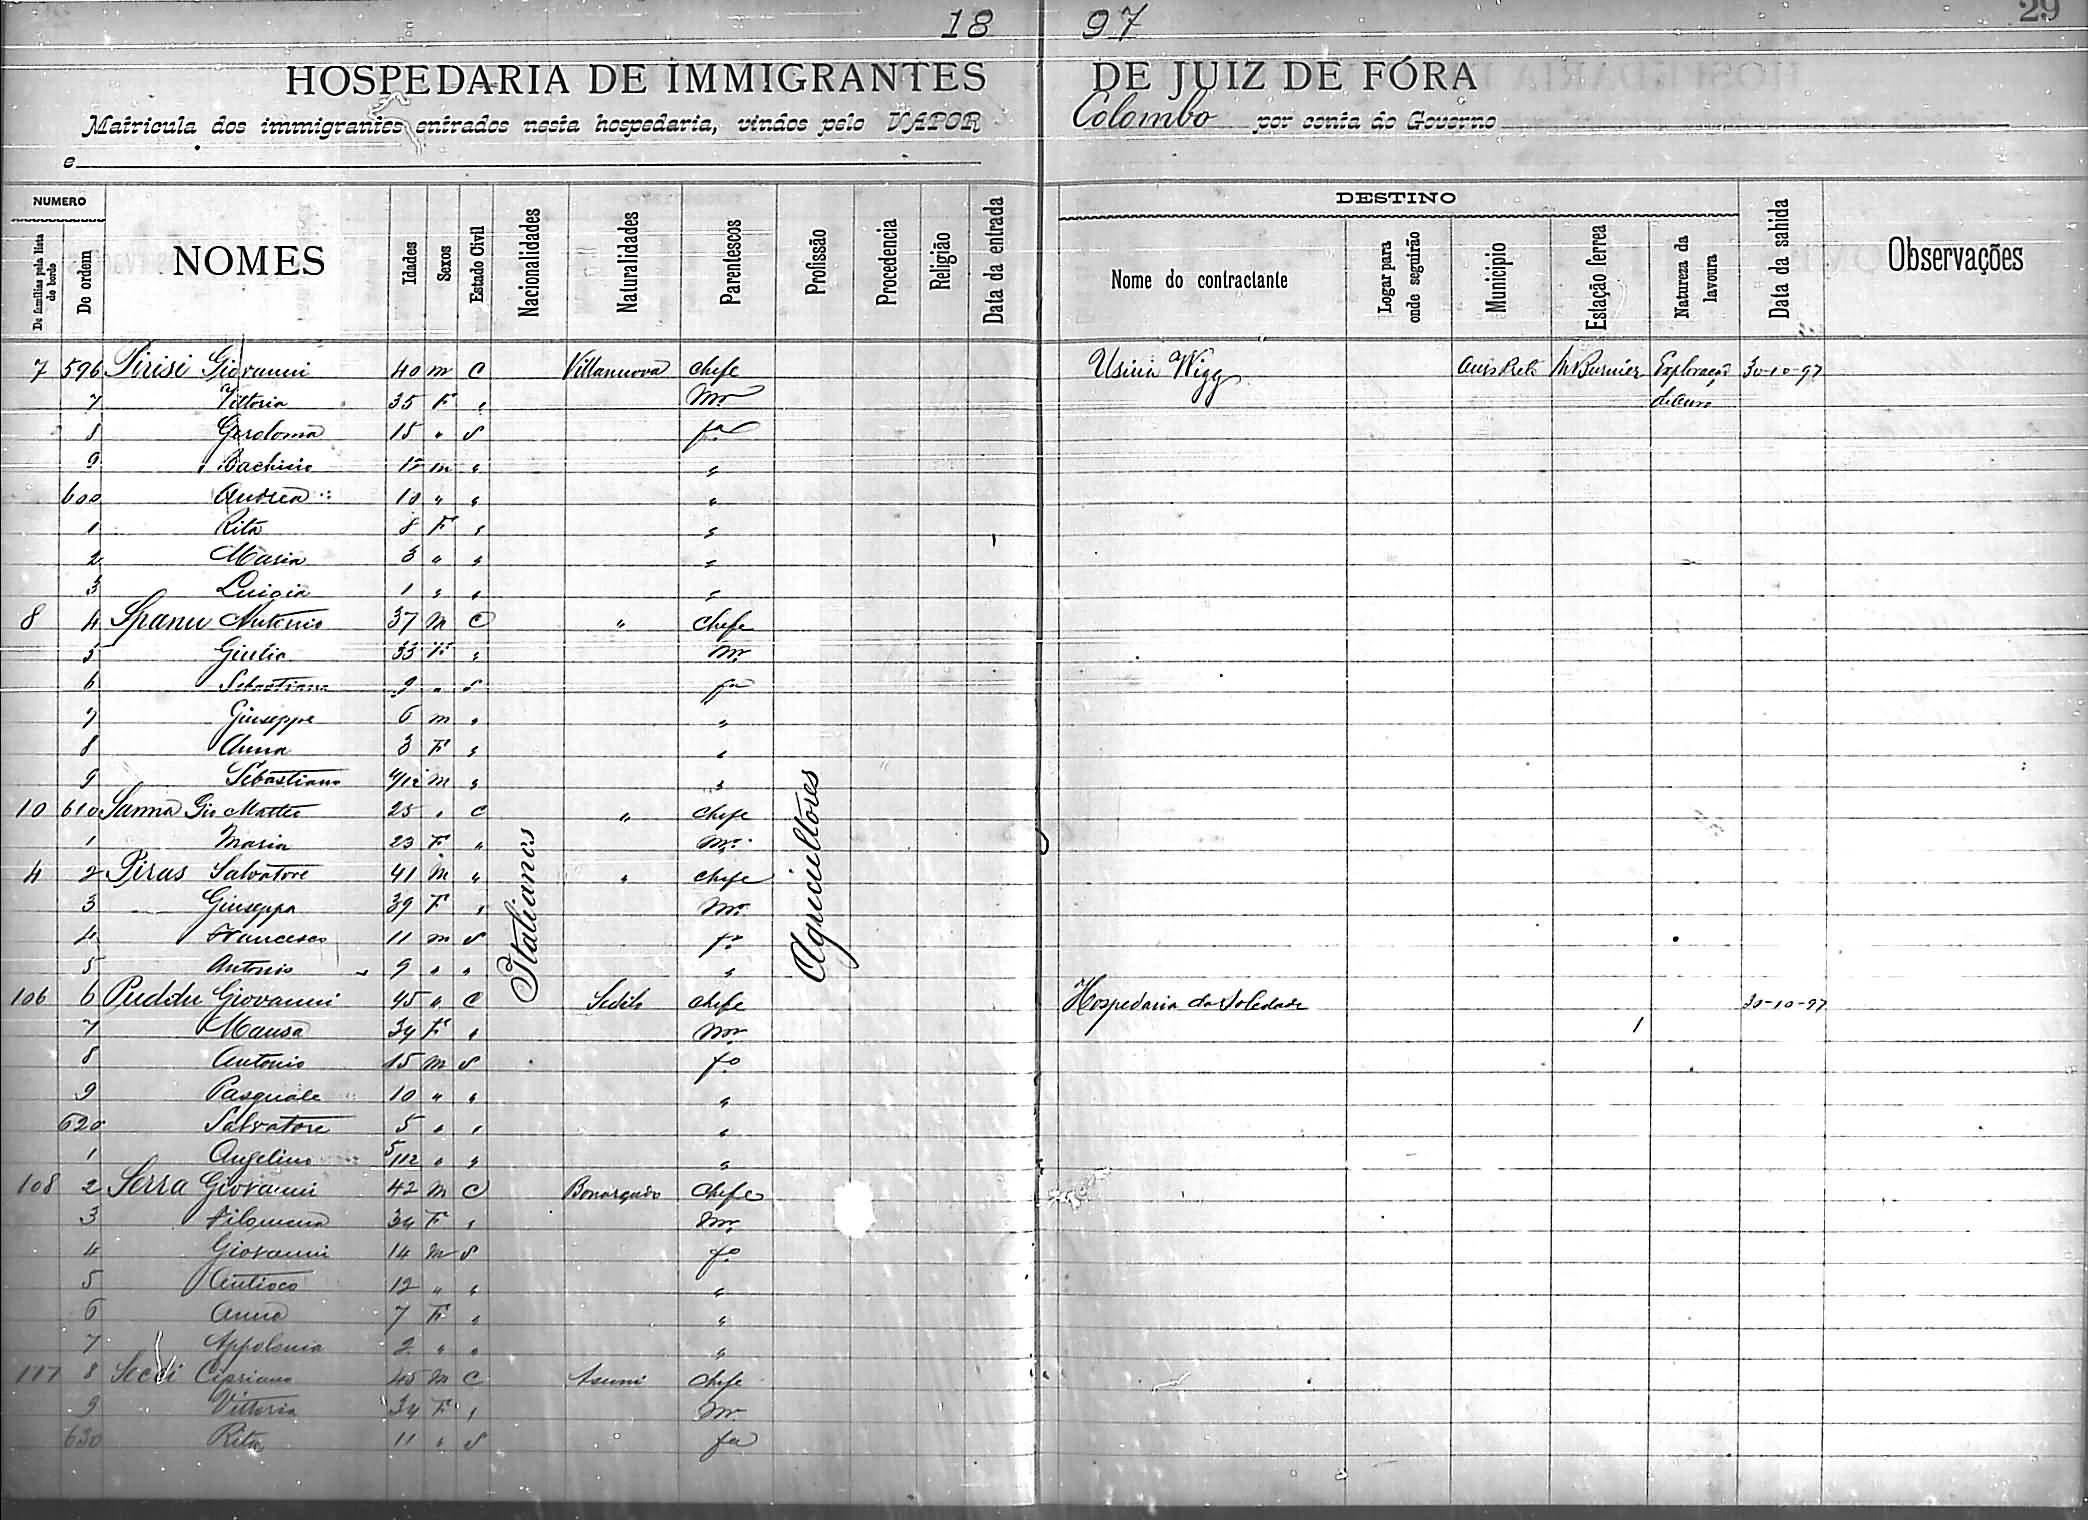 29
18 97
HOSPEDARIA DE IMMIGRANTES DE JUIZ DE FÓRA
Matricula dos immigrantes entrados nesta hospedaria, vindos pelo VAPOR Colombo por conta do Governo
e
NUMERO DESTINO
De familias pela lista de bordo De ordem NOMES Idades Sexos Estado Civil Nacionalidades Naturalidades Parentescos Profissão Procedencia Religião Data da entrada Nome do contractante Logar para onde seguirão Municipio Estação ferrea Natureza da lavoura Data da sahida Observações
7 596 Pirisi Giovanni 40 m C Villanuova Chefe Usina Wigg Ouro Preto M Burnier Exploração 30-10-97
7 Vittoria 35 F " Mr de ouro
8 Geroloma 15 " S fa
9 Bachisio 12 m " "
600 Andrea 10 " " "
1 Rita 8 F " "
2 Maria 3 " " "
3 Luigia 1 " " "
8 4 Spanu Antonio 37 M C " Chefe
5 Giulia 33 F " Mr
6 Sebastiana 9 " S fa
7 Giuseppe 6 m " "
8 Anna 3 F " "
9 Sebastiano /12 m " "
10 610 Sanna Gio Matteo 25 " C " Chefe
1 Maria 23 F " Mr
4 2 Piras Salvatore 41 M " " Chefe
3 Giuseppa 39 F " Mr
4 Francesco 11 m S fo
5 Antonio 9 " " "
Italianos
Agricultores
106 6 Puddu Giovanni 45 " C Sedilo Chefe Hospedaria da Soledade 30-10-97
7 Mausa 34 F " Mr
8 Antonio 15 M S fo
9 Pasquale 10 " " "
620 Salvatore 5 " " "
1 Angelino 5/12 " " "
108 2 Serra Giovanni 42 M C Bonargado Chefe
3 Filomena 34 F " Mr
4 Giovanni 14 M S fo
5 Antioco 12 " " "
6 Anna 7 F " "
7 Appolonia 2 " " "
117 8 Soddi Cipriano 45 M C Asuni Chefe
9 Vittoria 34 F " Mr
630 Rita 11 " S fa